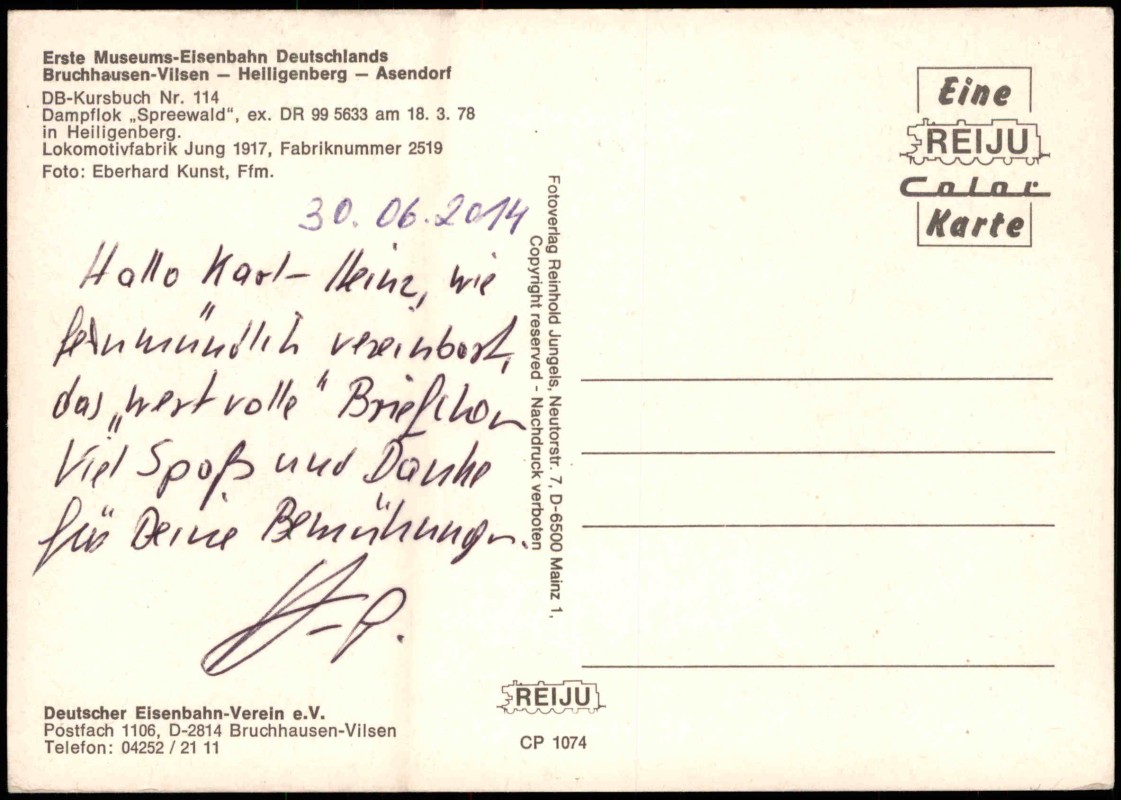 Erste Museums-Eisenbahn Deutschlands
Bruchhausen-Vilsen — Heiligenberg — Asendorf
DB-Kursbuch Nr. 114
Dampflok „Spreewald“, ex. DR 99 5633 am 18. 3. 78
in Heiligenberg.
Lokomotivfabrik Jung 1917, Fabriknummer 2519
Foto: Eberhard Kunst, Ffm.
30.06.2014
Hallo Karl-Heinz, wie
fernmündlich vereinbart,
das „wertvolle“ Briefchen
Viel Spaß und Danke
für Deine Bemühungen.
H-P.
Deutscher Eisenbahn-Verein e.V.
Postfach 1106, D-2814 Bruchhausen-Vilsen
Telefon: 04252 / 21 11
Fotoverlag Reinhold Jungels, Neutorstr. 7, D-6500 Mainz 1,
Copyright reserved - Nachdruck verboten
REIJU
CP 1074
Eine
REIJU
Color
Karte